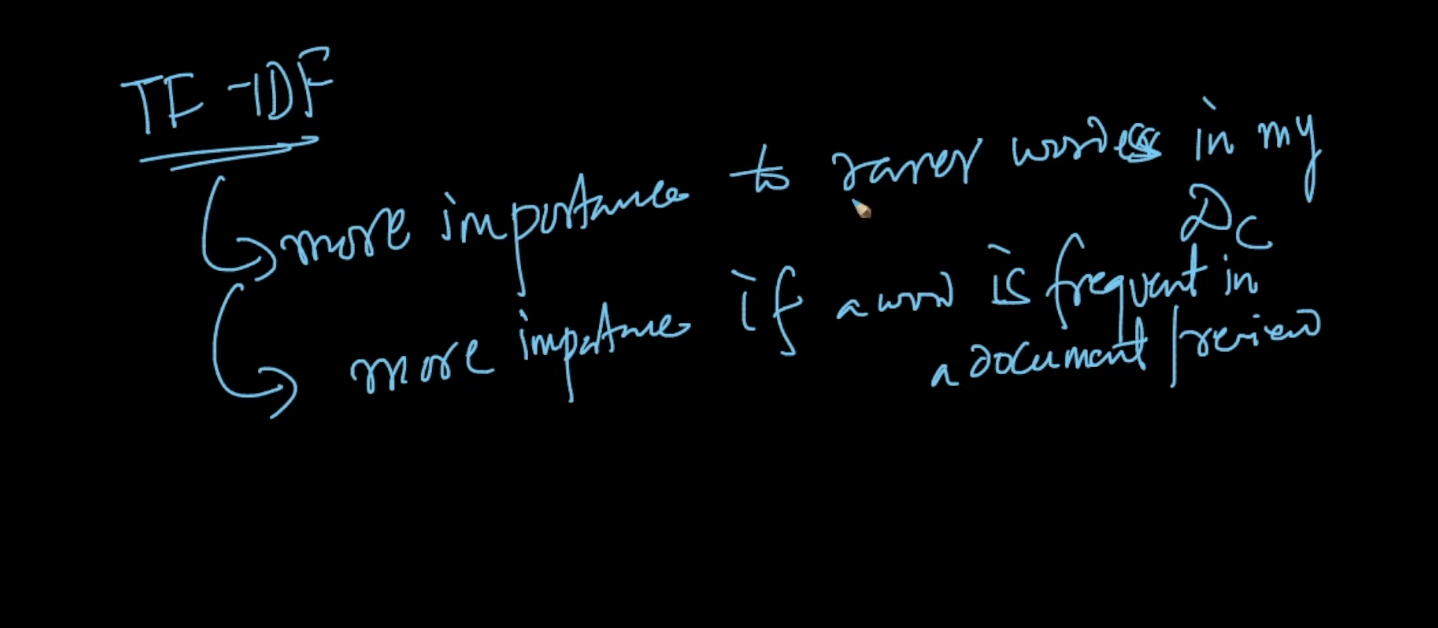 TF-IDF
more importance to rarer words in my
Dc
more importance if a word is frequent in
a document/review